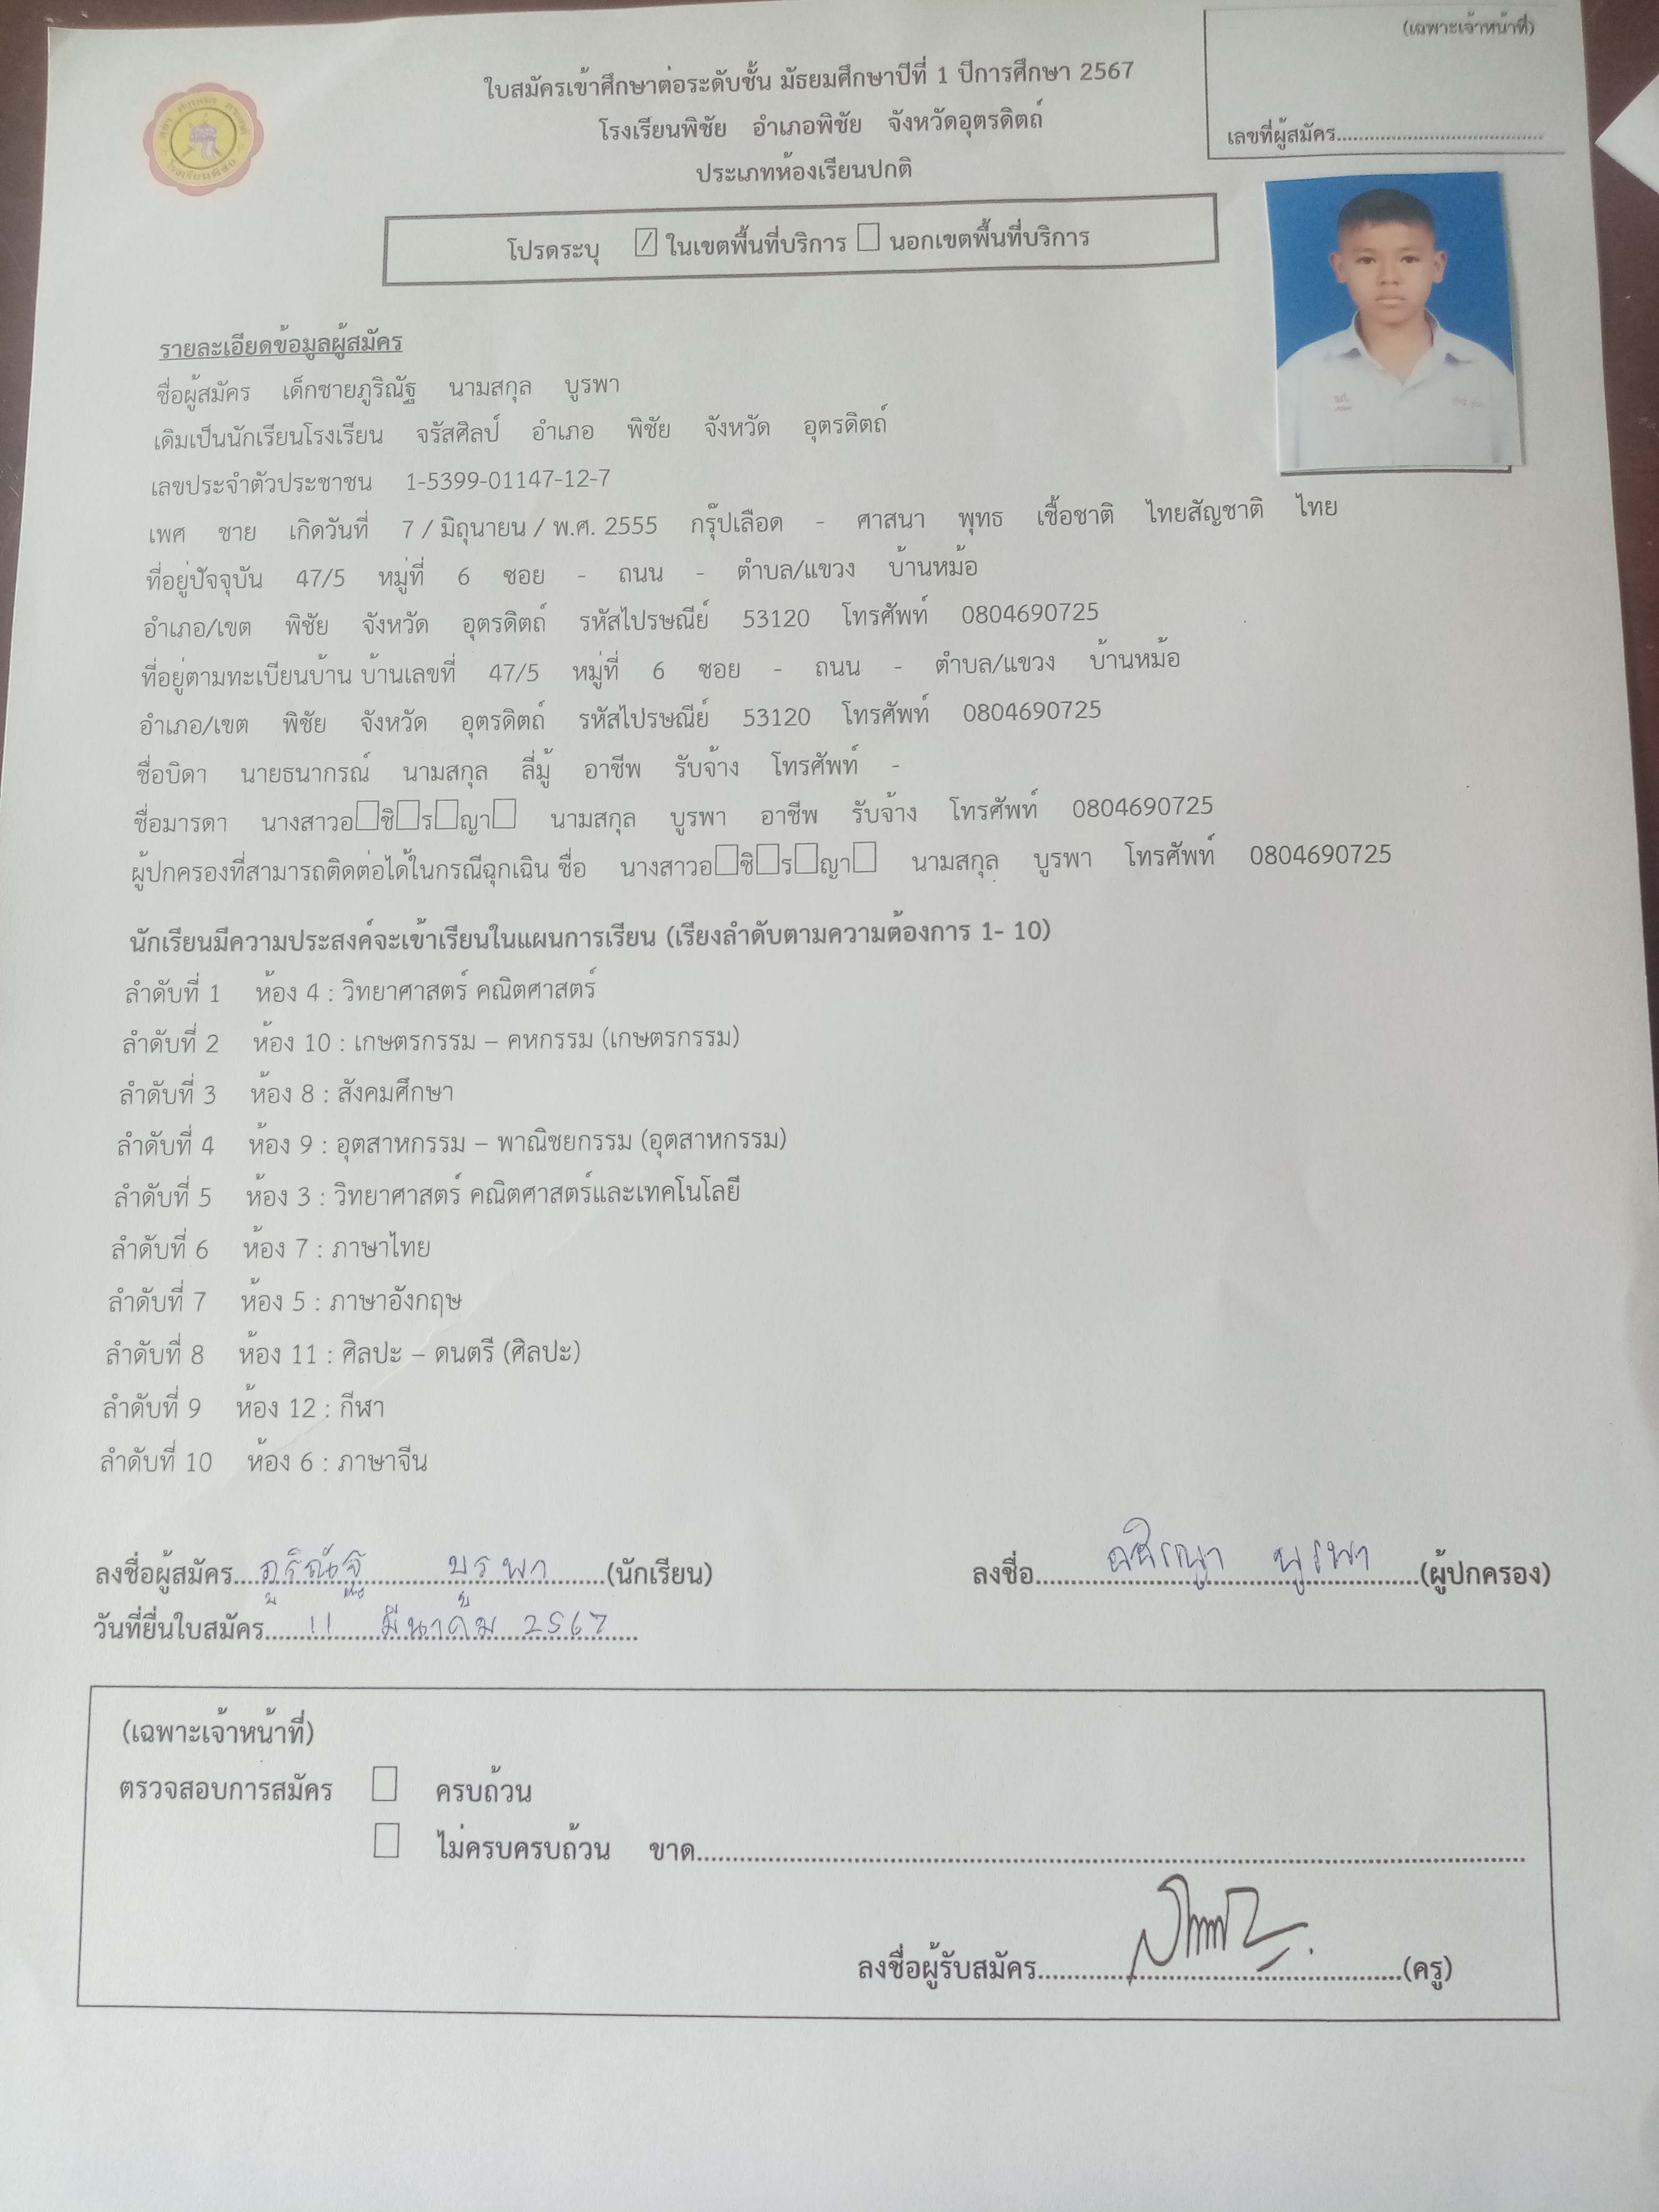 (เฉพาะเจ้าหน้าที่)
ใบสมัครเข้าศึกษาต่อระดับชั้น มัธยมศึกษาปีที่ 1 ปีการศึกษา 2567
โรงเรียนพิชัย อำเภอพิชัย จังหวัดอุตรดิตถ์
เลขที่ผู้สมัคร......................................
ประเภทห้องเรียนปกติ
โรงเรียนพิชัย
โปรดระบุ ☑ ในเขตพื้นที่บริการ ☐ นอกเขตพื้นที่บริการ
รายละเอียดข้อมูลผู้สมัคร
ชื่อผู้สมัคร เด็กชายภูริณัฐ นามสกุล บูรพา
เดิมเป็นนักเรียนโรงเรียน จรัสศิลป์ อำเภอ พิชัย จังหวัด อุตรดิตถ์
เลขประจำตัวประชาชน 1-5399-01147-12-7
เพศ ชาย เกิดวันที่ 7 / มิถุนายน / พ.ศ. 2555 กรุ๊ปเลือด - ศาสนา พุทธ เชื้อชาติ ไทยสัญชาติ ไทย
ที่อยู่ปัจจุบัน 47/5 หมู่ที่ 6 ซอย - ถนน - ตำบล/แขวง บ้านหม้อ
อำเภอ/เขต พิชัย จังหวัด อุตรดิตถ์ รหัสไปรษณีย์ 53120 โทรศัพท์ 0804690725
ที่อยู่ตามทะเบียนบ้าน บ้านเลขที่ 47/5 หมู่ที่ 6 ซอย - ถนน - ตำบล/แขวง บ้านหม้อ
อำเภอ/เขต พิชัย จังหวัด อุตรดิตถ์ รหัสไปรษณีย์ 53120 โทรศัพท์ 0804690725
ชื่อบิดา นายธนากรณ์ นามสกุล ลี่มู้ อาชีพ รับจ้าง โทรศัพท์ -
ชื่อมารดา นางสาวอ☐ชิ☐ร☐ญา☐ นามสกุล บูรพา อาชีพ รับจ้าง โทรศัพท์ 0804690725
ผู้ปกครองที่สามารถติดต่อได้ในกรณีฉุกเฉิน ชื่อ นางสาวอ☐ชิ☐ร☐ญา☐ นามสกุล บูรพา โทรศัพท์ 0804690725
นักเรียนมีความประสงค์จะเข้าเรียนในแผนการเรียน (เรียงลำดับตามความต้องการ 1- 10)
ลำดับที่ 1 ห้อง 4 : วิทยาศาสตร์ คณิตศาสตร์
ลำดับที่ 2 ห้อง 10 : เกษตรกรรม – คหกรรม (เกษตรกรรม)
ลำดับที่ 3 ห้อง 8 : สังคมศึกษา
ลำดับที่ 4 ห้อง 9 : อุตสาหกรรม – พาณิชยกรรม (อุตสาหกรรม)
ลำดับที่ 5 ห้อง 3 : วิทยาศาสตร์ คณิตศาสตร์และเทคโนโลยี
ลำดับที่ 6 ห้อง 7 : ภาษาไทย
ลำดับที่ 7 ห้อง 5 : ภาษาอังกฤษ
ลำดับที่ 8 ห้อง 11 : ศิลปะ – ดนตรี (ศิลปะ)
ลำดับที่ 9 ห้อง 12 : กีฬา
ลำดับที่ 10 ห้อง 6 : ภาษาจีน
ลงชื่อผู้สมัคร....ภูริณัฐ บูรพา........(นักเรียน) ลงชื่อ........อชิรญา บูรพา........(ผู้ปกครอง)
วันที่ยื่นใบสมัคร......11 มีนาคม 2567....
(เฉพาะเจ้าหน้าที่)
ตรวจสอบการสมัคร ☐ ครบถ้วน
☐ ไม่ครบครบถ้วน ขาด............................................................
ลงชื่อผู้รับสมัคร..................................................(ครู)